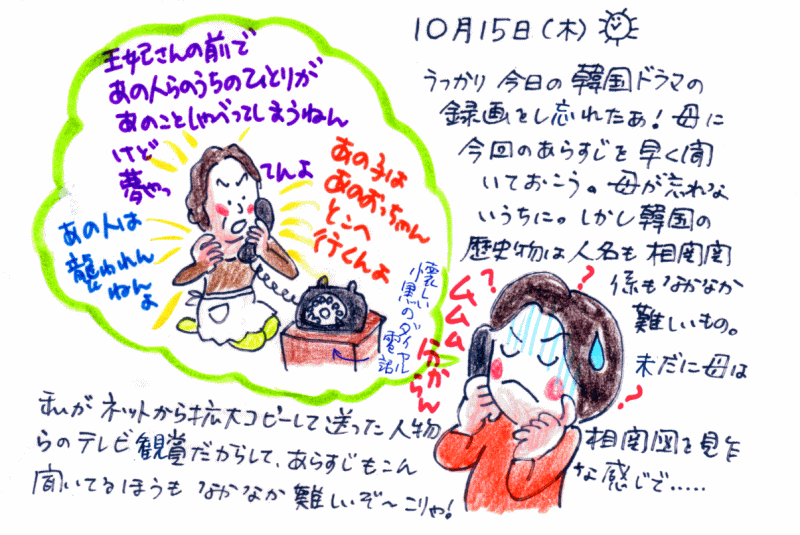 10月15日(木)
うっかり今日の韓国ドラマの
録画をし忘れたぁ！母に
今回のあらすじを早く聞
いておこう。母が忘れな
いうちに。しかし韓国の
歴史物は人名も相関関
係もなかなか
難しいもの。
未だに母は
私がネットから拡大コピーして送った人物
相関図を見乍
らのテレビ観賞だからして、あらすじもこん
な感じで.....
聞いてるほうもなかなか難しいぞ〜こりゃ！
王妃さんの前で
あの人らのうちのひとりが
あのことしゃべってしまうねん
けど
夢やっ
てんよ
あの子は
あのおっちゃん
とこへ
行くんよ
あの人は
襲われん
ねんよ
懐しい
黒のダイヤル
電話
ムムム
分からん
? ? ? ?